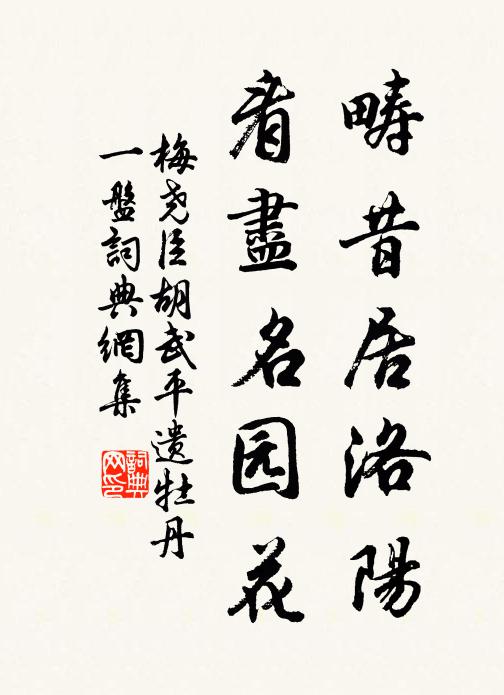 疇昔居洛陽
看盡名园花
梅尧臣胡武平遗牡丹
一盤詞典網集
詞典网印